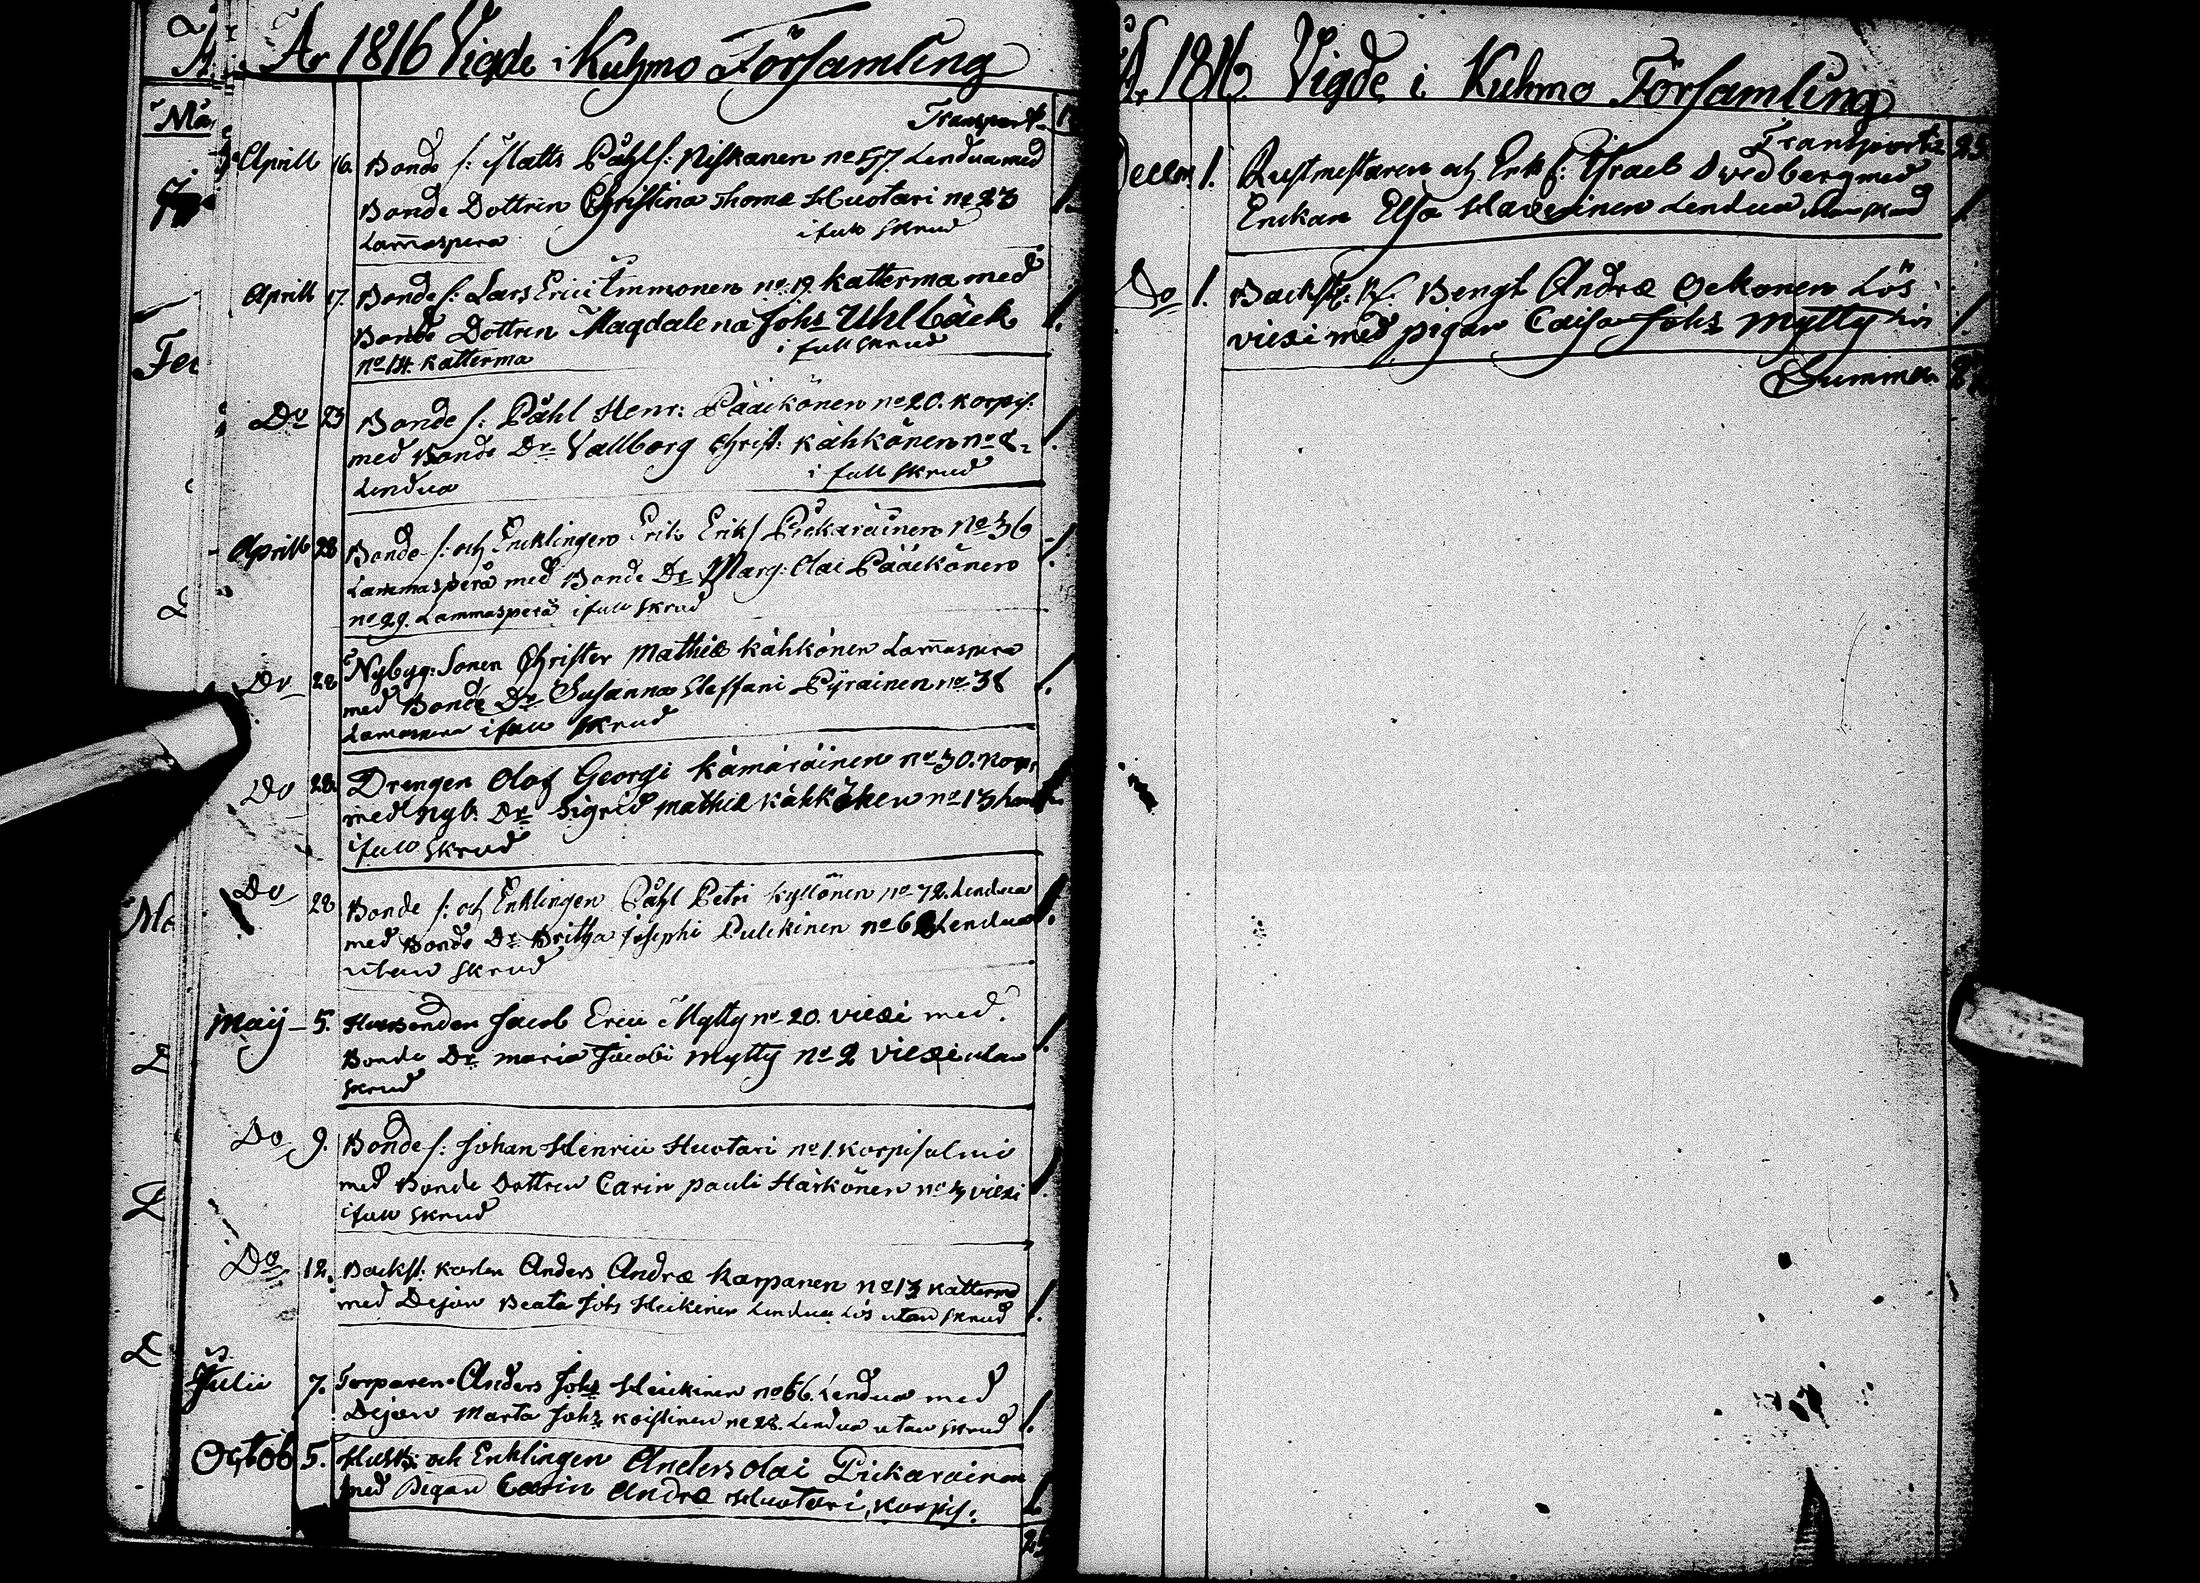 År 1816 Vigde i Kuhmo Församling
Transport
Aprill 16. Bonde s: Matts Påhls: Niskanen no 57. Lendua med
Bonde Dottren Christina Thomæ Huotari no 23
Lam̄aspera i full skrud 1.
Aprill 17. Bonde s: Lars Erici Immonen no 19 Katterma med
Bonde Dottren Magdalena Johs Uhlbäck 1.
no 14. Katterma i full skrud
Do 23 Bonde s: Påhl Henr: Pääckönen no 20. Korpis:
med Bonde Dr Vallborg Christ: Kähkönen no 2 1.
Lendua i full skrud
Aprill 28 Bonde s: och Encklingen Erik Eriks Pickaräinen No 36
Lammasperä med Bonde Dr Marg: Olai Pääckönen 1.
no 29. Lammasperä i full skrud
Do 28 Nybyg: Sonen Christer Mathiæ Kähkönen Lam̄aspera
med Bonde Dr Susanna Staffani Pyrainen no 38 1.
Lamaspera i full skrud
Do 28. Drengen Olof Georgi Kämäräinen no 30. Korp
med Nyb. Dr Sigrid Mathiæ Kähkönen no 13
i full skrud
Do 28 Bonde s: och Enklingen Påhl Petri Kyllönen no 72. Lendua
med Bonde Dr Britha Josephi Pulckinen no 62 Lendua 1.
utan skrud
Maij 5. Husbonden Jacob Erici Mytty no 20. Viexi med
Bonde Dr Maria Jacobi Mytty no 2 Viexi utan 1.
skrud
Do 9. Bonde s: Johan Henrici Huotari no 1. Korpisalmi
med Bonde Dottren Carin Pauli Härkönen no 3 Viexi 1.
i full skrud
Do 12. Backst: Karlen Anders Andræ Karpanen no 13 Katterma
med Dejan Beata Johs Heikinen Lendua Lös utan skrud 1.
Julii 7. Torparen Anders Johs Heickinen no 66. Lendua med
Dejan Marta Johs Koistinen no 28. Lendua utan skrud 1.
Octob 5. Husb: och Enklingen Anders Olai Pickarainen
med Pigan Carin Andræ Huotari, Korpis: 1
25
År 1816 Vigde i Kuhmo Församling
Transport 25
Decem. 1. Rustmestaren och Enkl: Israel Svedberg med
Enckan Elsa Haverinen Lendua utan skrud 1.
Do 1. Backst: K: Bengt Andræ Ockonen Lös
viexi med pigan Caisa Johs Mytty 1
Summa 27